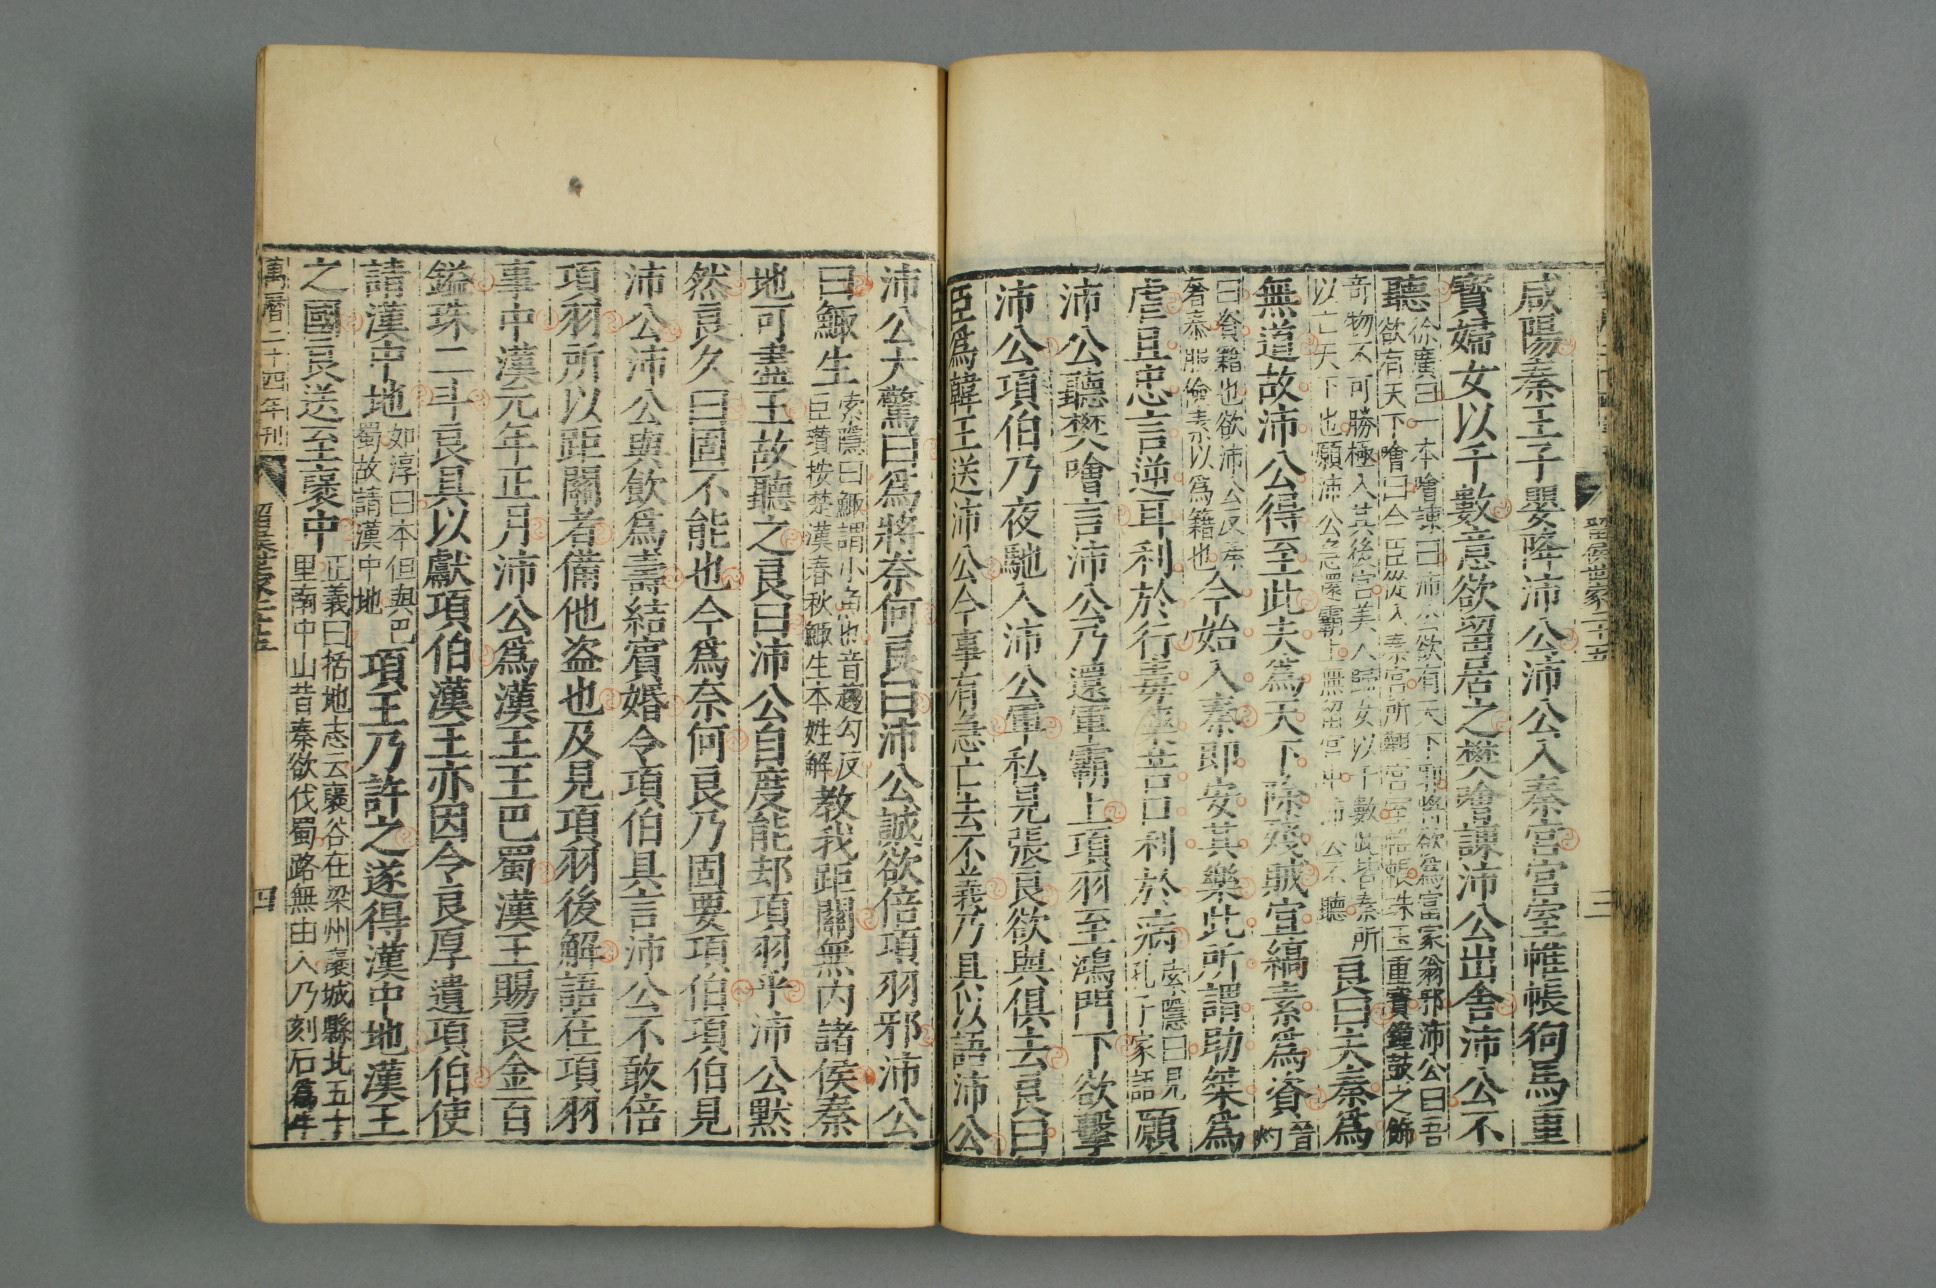 留侯世家二十五
三
咸陽秦王子嬰降沛公沛公入秦宮宮室帷帳狗馬重
寶婦女以千數意欲留居之樊噲諫沛公出舍沛公不
聽徐廣曰一本噲諫曰沛公欲有天下耶將欲爲富家翁邪沛公曰吾
欲有天下噲曰今臣從入秦宮所觀宮室帷帳珠玉重寶鐘鼓之飾
奇物不可勝極入其後宮美人婦女以千數此皆秦所
以亡天下也願沛公急還霸上無留宮中沛公不聽良曰夫秦爲
無道故沛公得至此夫爲天下除殘賊宜縞素爲資音灼
曰資籍也欲沛公反秦
奢泰服儉素以爲籍也今始入秦即安其樂此所謂助桀爲
虐且忠言逆耳利於行毒藥苦口利於病索隱曰見
孔子家語願
沛公聽樊噲言沛公乃還軍霸上項羽至鴻門下欲擊
沛公項伯乃夜馳入沛公軍私見張良欲與俱去良曰
臣爲韓王送沛公今事有急亡去不義乃具以語沛公
沛公大驚曰爲將奈何良曰沛公誠欲倍項羽邪沛公
曰鯫生索隱曰鯫謂小魚也音趨勾反
臣瓚按楚漢春秋鯫生本姓解教我距關無內諸侯秦
地可盡王故聽之良曰沛公自度能却項羽乎沛公黙
然良久曰固不能也今爲奈何良乃固要項伯項伯見
沛公沛公與飲爲壽結賓婚令項伯具言沛公不敢倍
項羽所以距關者備他盜也及見項羽後解語在項羽
事中漢元年正月沛公爲漢王王巴蜀漢王賜良金百
鎰珠二斗良具以獻項伯漢王亦因令良厚遺項伯使
請漢中地如淳曰本但與巴
蜀故請漢中地項王乃許之遂得漢中地漢王
之國良送至襃中正義曰括地志云襃谷在梁州襃城縣北五十
里南中山昔秦欲伐蜀路無由入乃刻石爲牛
萬曆二十四年刊
留侯世家二十五
四